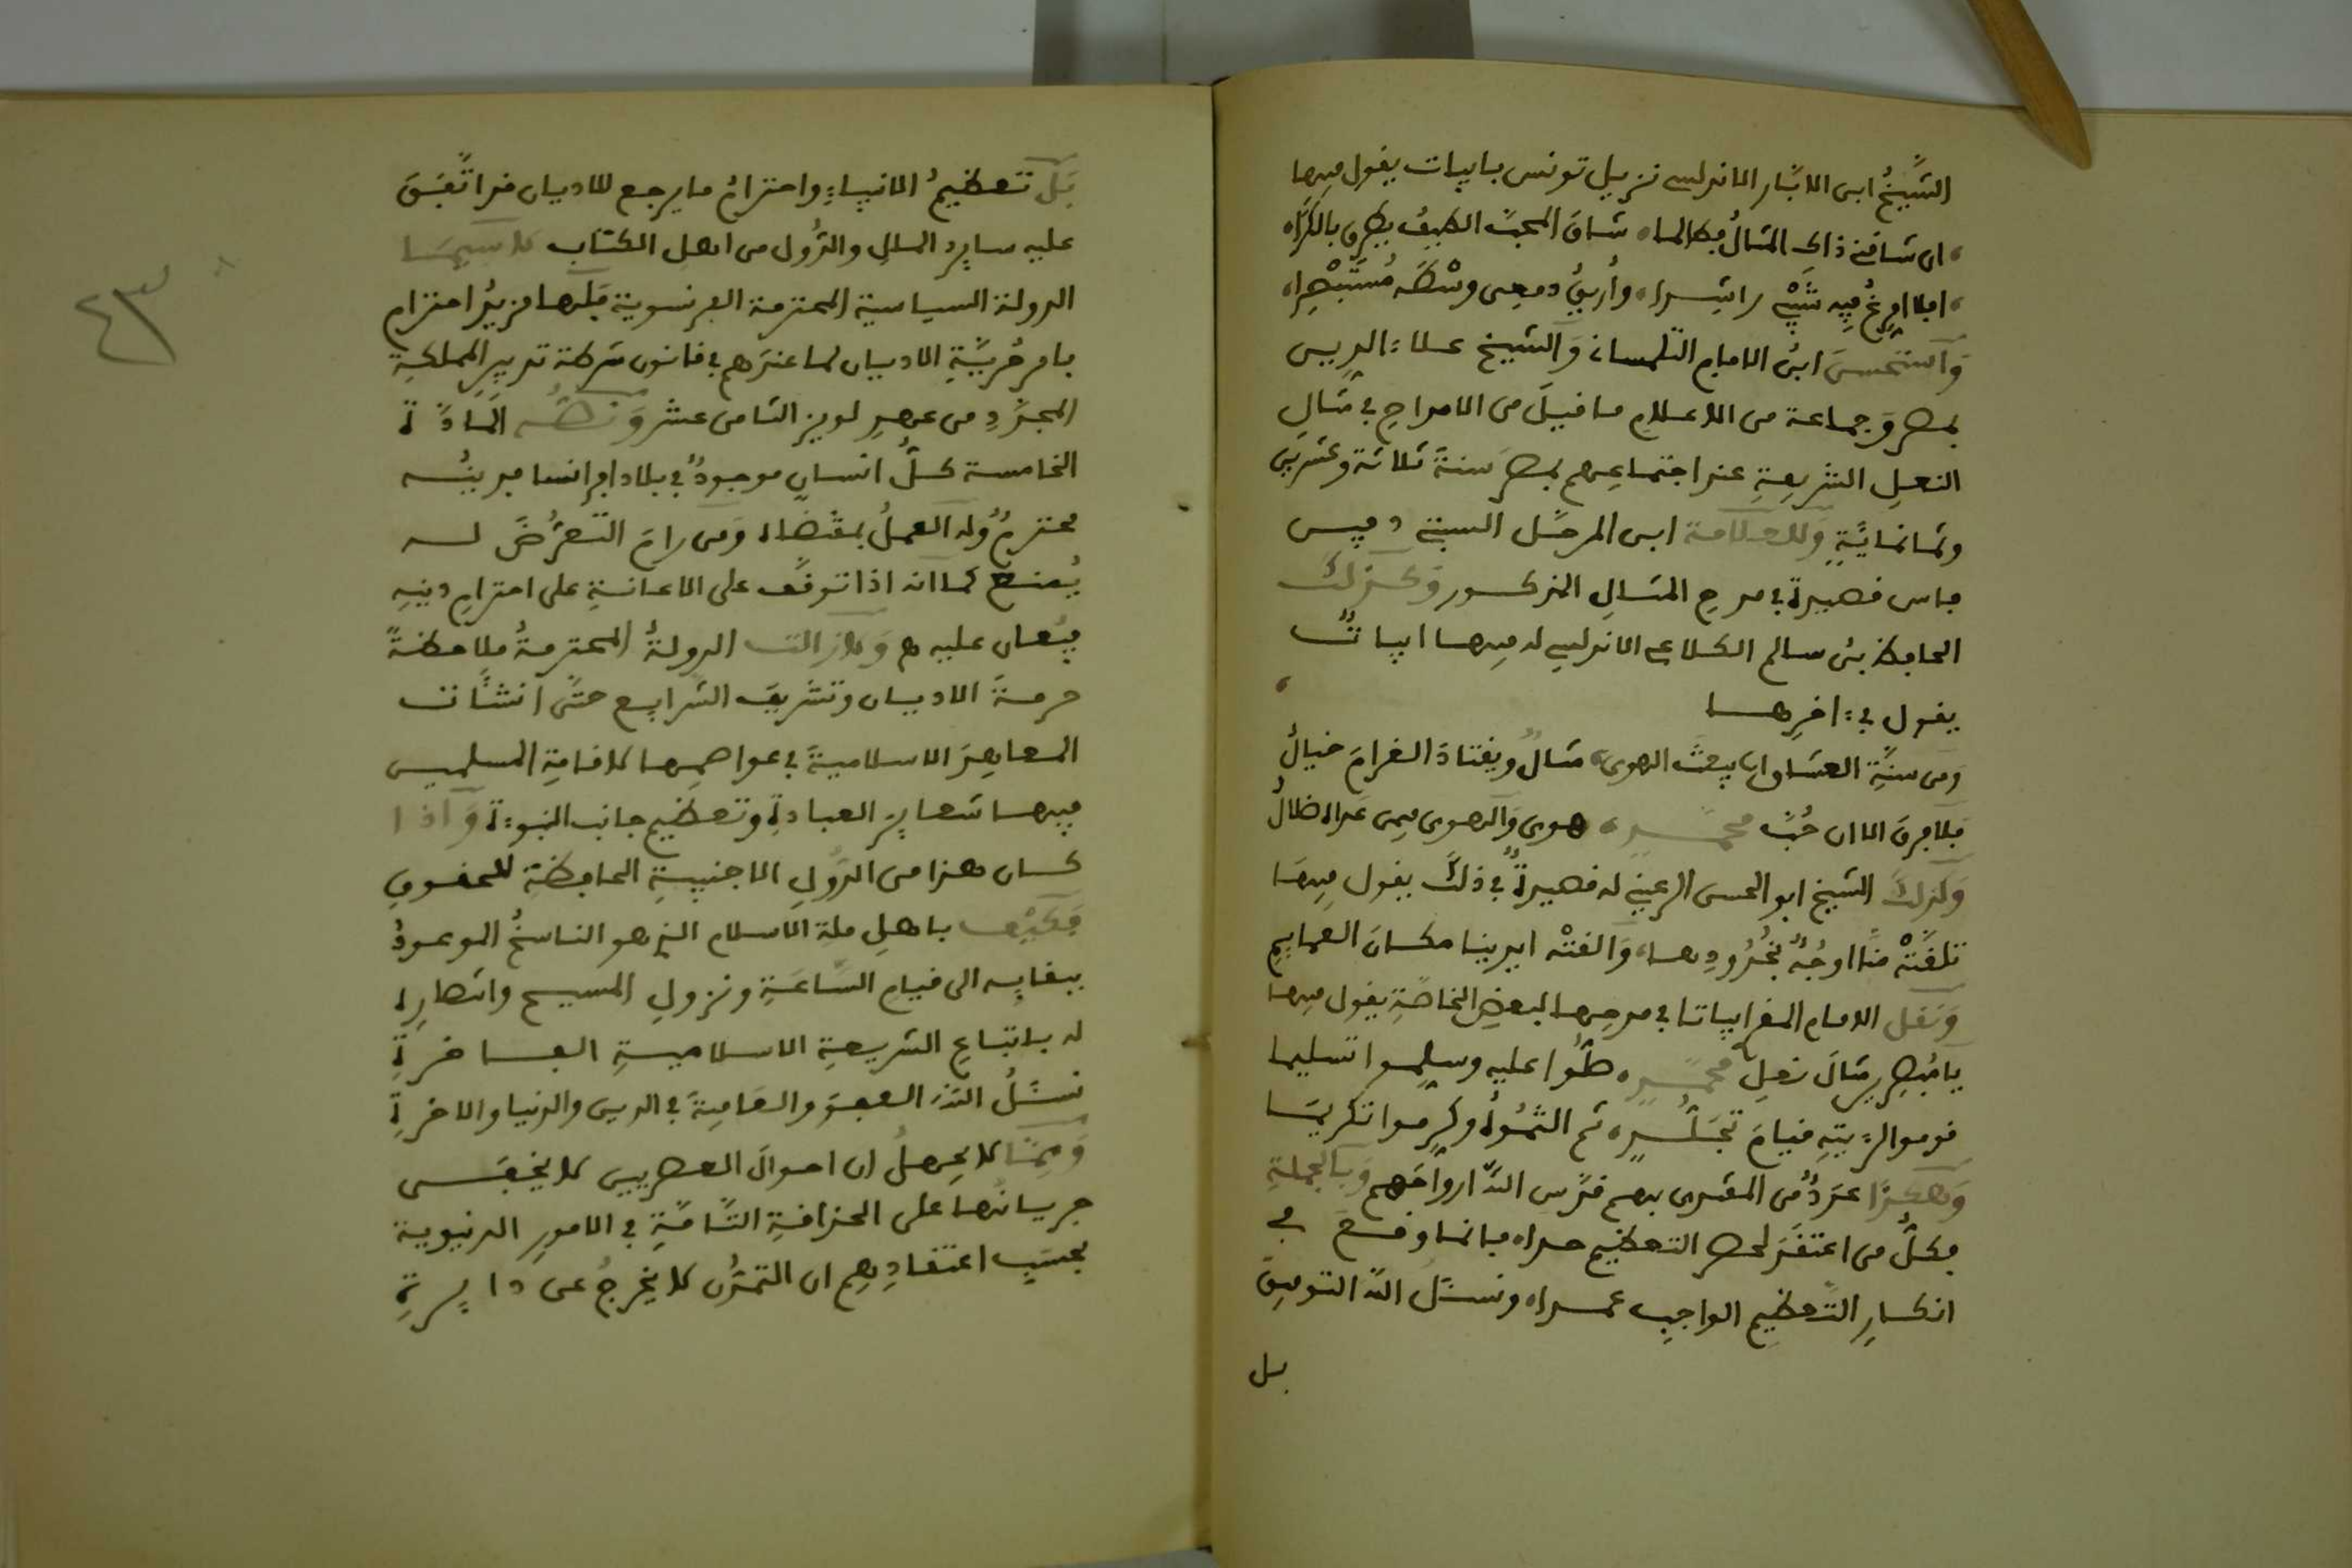 الشَّيخُ ابن الابَّار الاندلسي نزيل تونس بابيات يقول فيها
ان شافني ذاك المثالُ فطالما شاق المحبَّ الطيفُ يطرق بالكرَاه
افلا امرغُ فيه شَيْبي راشدا وأُريقُ دمعي وسْطه مُسْتَبْصِرا
وَاستحسنَ ابنُ الامام التلمساني وَالشيخ علاء الدين
بمصر وَجماعة من الاعلام ما قيلَ من الامداحِ في مثالِ
النعلِ الشريفةِ عند اجتماعِهم بمصرَ سنةَ ثلاثة وعشرين
وثمانمايَّةٍ وَللعلَّامة ابن المرحَّل السبتي دفين
فاس قصيدة في مدحِ المثالِ المذكور وَكذلك
الحافظ بنُ سالم الكلاعي الاندلسي له فيها ابياتٌ
يقول في ءاخرِها
وَمن سنَّةِ العشاق ان يبعثَ الهوى مثالٌ ويقتادَ الغرامَ خيالُ
فلا فرقَ الا ان حُبَّ محمَّدٍ هدى وَالهوى فيمن عداه ضلالُ
وَكذلكَ الشيخ ابو الحسن الرعيني له قصيدةٌ في ذلكَ يقول فيها
تلقَّتْه منَّا اوجُهٌ بخُدُودِها وَالفتْه ايدينا مكانَ العمايمِ
وَنقل الامام المقري ابياتا في مدحِها لبعضِ الخاصَّةِ يقول فيها
يا مُبصِر مثالَ نعلِ محمَّدٍ صلُّوا عليه وسلِّموا تسليما
قوموا لرءيتِه قيامَ تجَلُّدٍ ثم الثمُوهُ وكرِّموا تكريما
وَهكذا عدَدٌ من المقتدى بهم قدَّس اللَّهُ ارواحَهم وَبالجملةِ
فكلُّ من اعتقَد لحصر التعظيم حداه فانما وقعَ في
انكارِ التَّعظيمِ الواجبِ عمداه ونسئلُ اللَّه التوفيق
بل
بَل تعظيمُ الانبياءِ واحترامُ ما يرجع للاديان قد اتَّفقَ
عليه سايرُ المللِ والدُّول من اهل الكتاب لا سيما
الدولة السياسية المحترمة الفرنسوية فلَها مزيدُ احترامٍ
بامر حُرِّيَّةِ الاديان لما عندَهم في قانون شرطة تدبيرِ المملكةِ
المجدَّدِ من عهدِ لويز الثامن عشر وَنصُّه المادَّة
الخامسة كلُّ انسانٍ موجودٌ في بلاد افرانسا فدينُه
محترمٌ وله العملُ بمقتضاه وَمن رامَ التعرُّضَ له
يُمنع كما انه اذا توقَّف على الاعانةِ على احترامِ دينِه
فيُعان عليه هـ وَلازالت الدولةُ المحترمةُ ملاحظةً
حرمةَ الاديان وتشريفَ الشَّرايع حتَّى انشأت
المعاهدَ الاسلاميةَ في عواصمِها لاقامةِ المسلمين
فيها شعايرَ العبادةِ وتعظيم جانب النبوءة وَاذا
كان هذا من الدُّولِ الاجنبيةِ الحافظةِ للحقوقِ
فكَيْف باهلِ ملة الاسلام الذي هو الناسخُ الموعودُ
ببقايه الى قيامِ السَّاعَةِ ونزولِ المسيح وانتصارِه
له باتِّباعِ الشريعةِ الاسلاميةِ الفاخرةِ
نسئلُ اللَّه العفوَ والعَافِيةَ في الدينِ والدنيا والاخرةِ
وَممَّا لا يُجهلُ ان احوالَ العصريين لا يخفى
جريانُها على الحذاقةِ التَّامَّةِ في الامورِ الدنيوية
بحسَبِ اعتقادِهم ان التمدُّن لا يخرجُ عن دايرتِه
٤٣